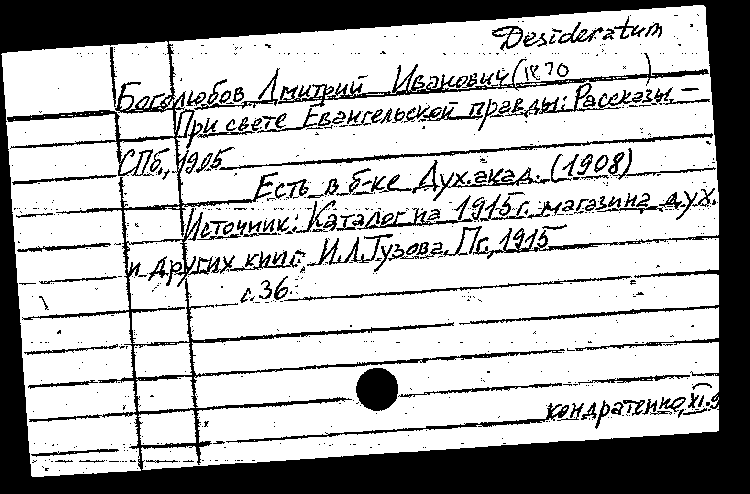 Desideratum
Боголюбов, Дмитрий Иванович (1870 )
При свете Евангельской правды: Рассказы. –
СПб., 1905
Есть в б-ке Дух. акад. (1908)
Источник: Каталог на 1915 г. магазина дух.
и других книг. И.Л. Тузова. Пг., 1915
с. 36.
кондратенко, XI.9